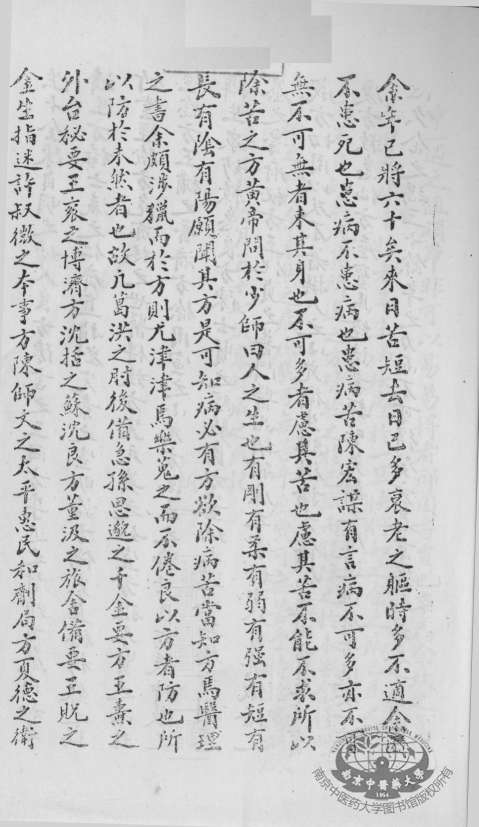 余年已將六十矣來日苦短去日已多衰老之軀時多不適余
不患死也患病不患病也患病苦陳宏謀有言病不可多亦不
無不可無者束其身也不可多者慮其苦也慮其苦不能不求所以
除苦之方黃帝問於少師曰人之生也有剛有柔有弱有强有短有
長有陰有陽願聞其方是可知病必有方欲除病苦當知方焉醫理
之書余頗涉獵而於方則尤津津焉樂蒐之而不倦良以方者防也所
以防於未然者也故凡葛洪之肘後備急孫思邈之千金要方王燾之
外台秘要王袞之博濟方沈括之蘇沈良方董汲之旅舍備要王貺之
全生指迷許叔微之本事方陳師文之太平惠民和劑局方夏德之衛
南京中醫藥大學
1954
南京中医药大学图书馆版权所有